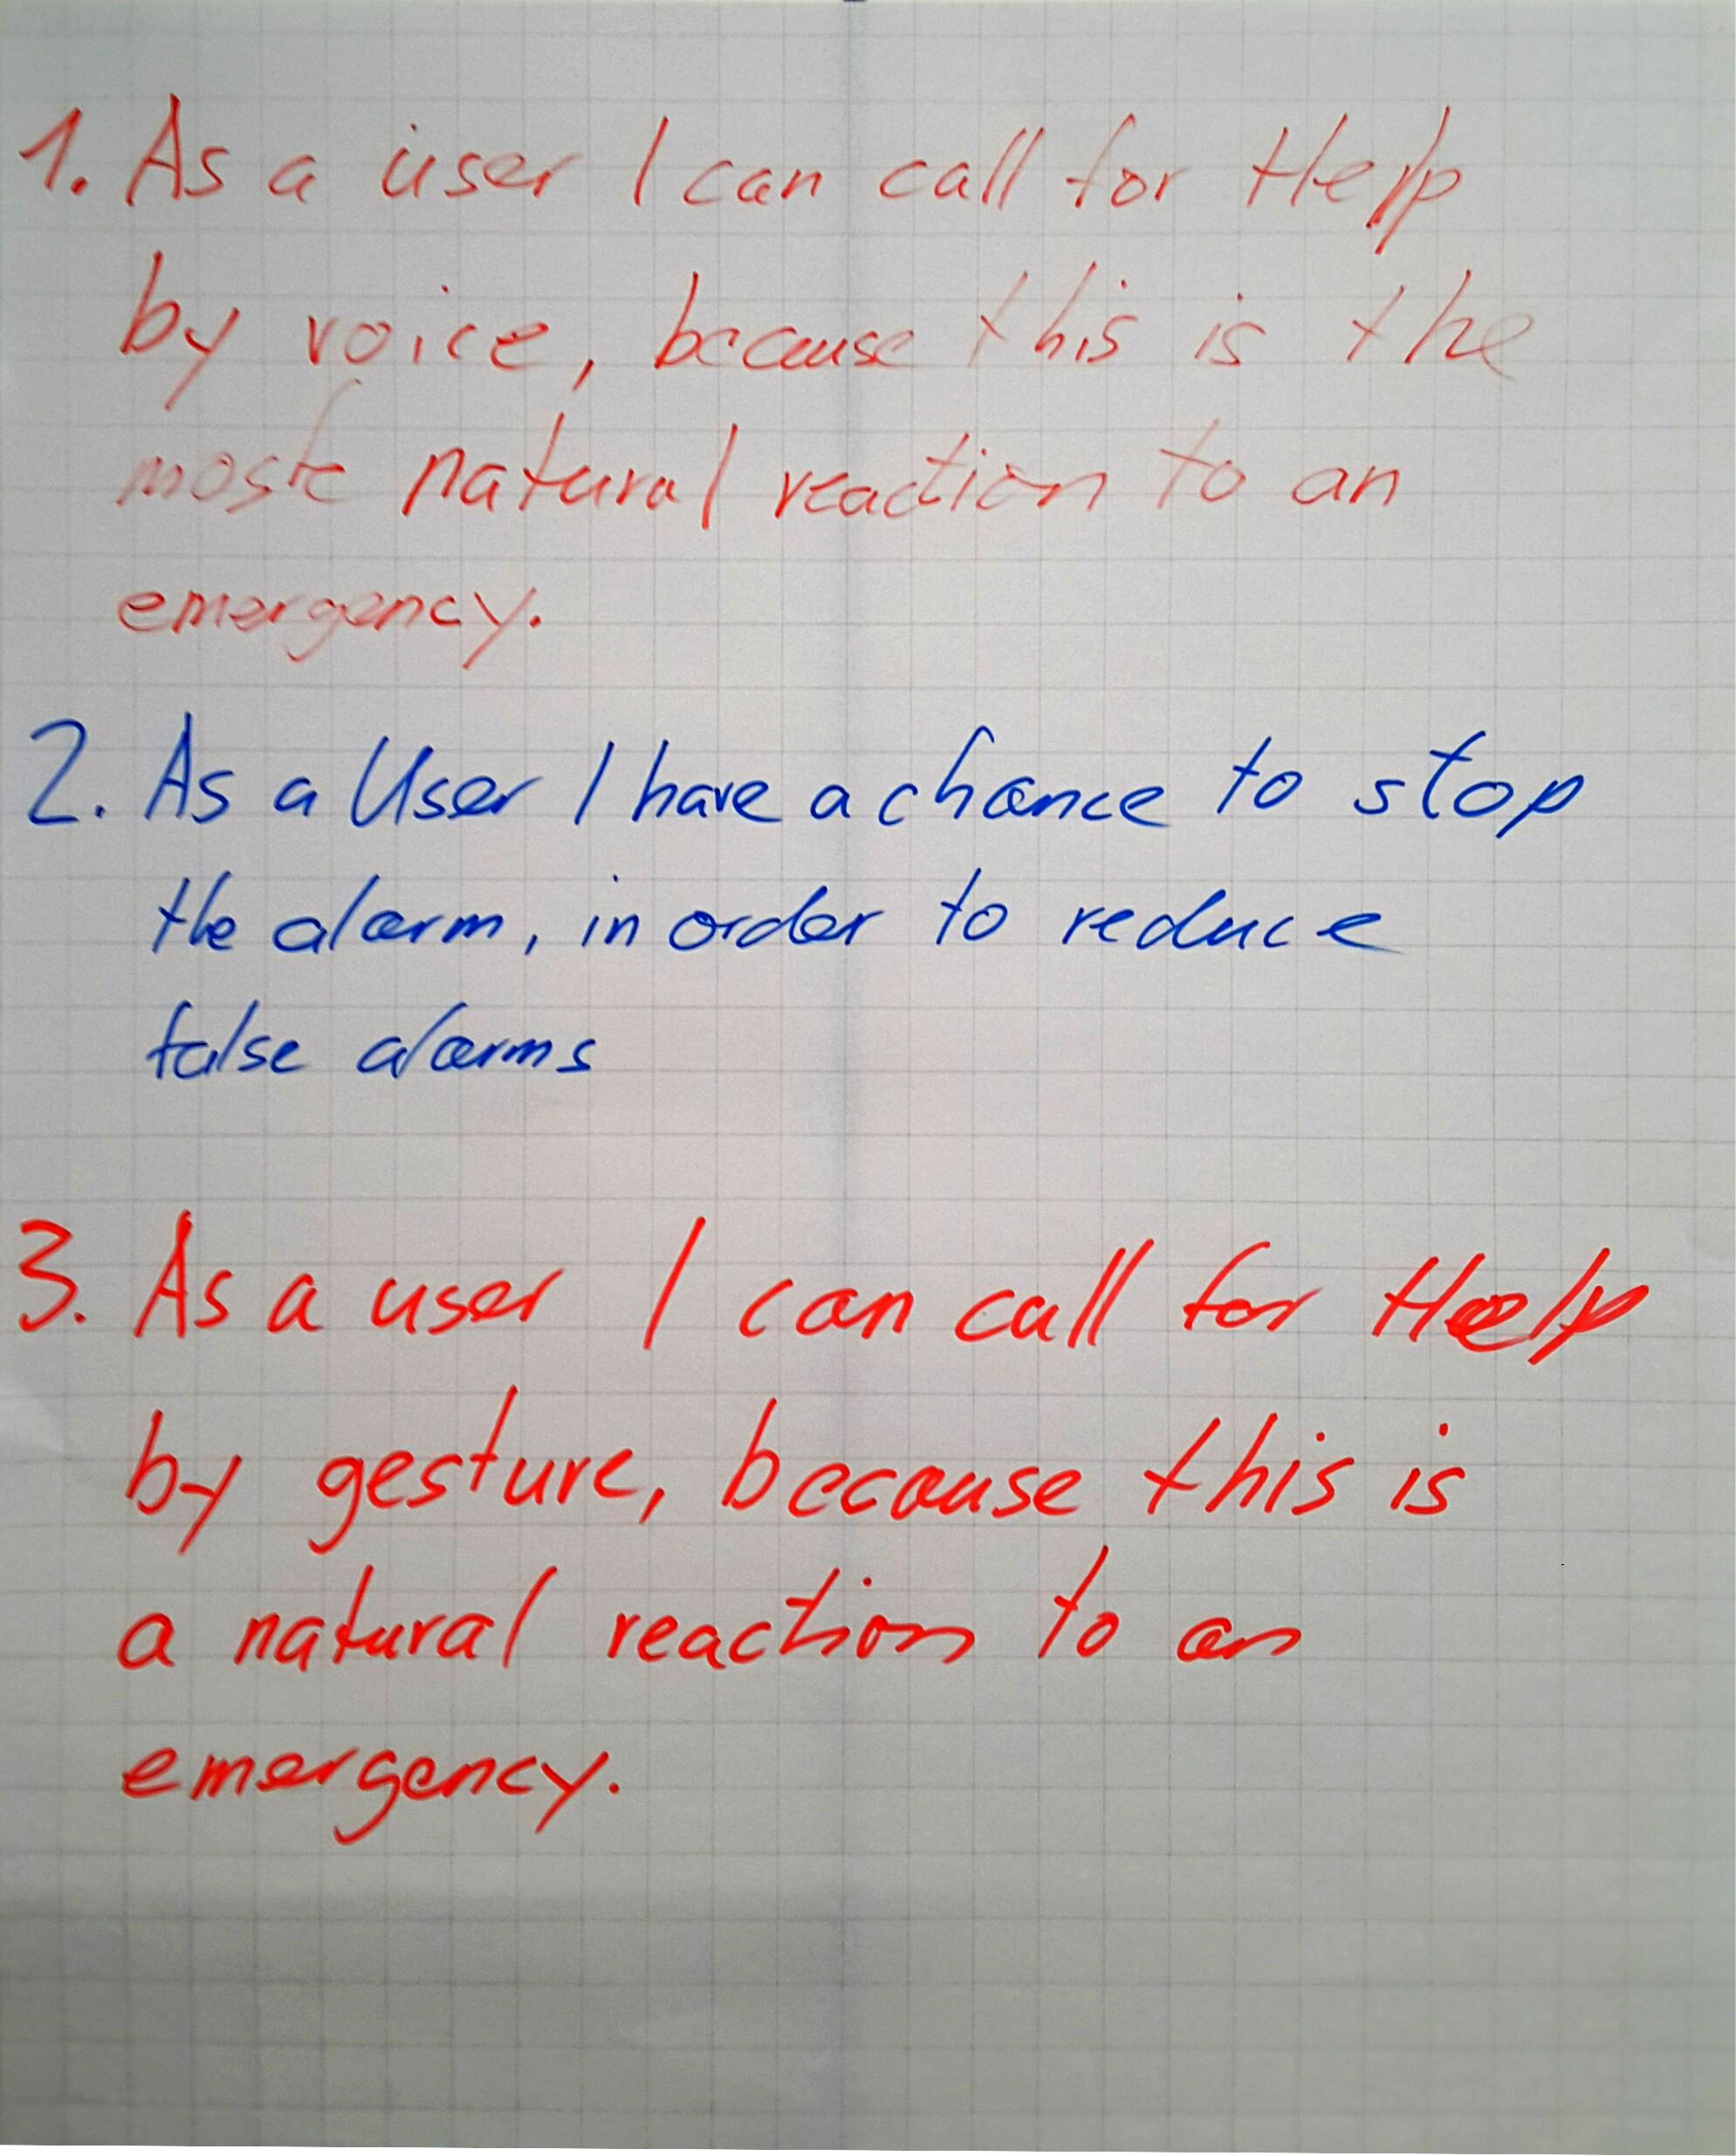 1. As a user I can call for Help
by voice, because this is the
most natural reaction to an
emergency.
2. As a User I have a chance to stop
the alarm, in order to reduce
false alarms
3. As a user I can call for Help
by gesture, because this is
a natural reaction to an
emergency.